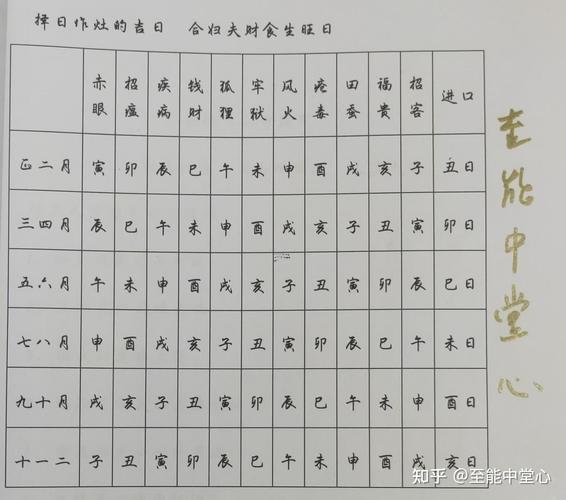 择日作灶的吉日 合妇夫财食生旺日
赤眼 招瘟 疾病 钱财 孤狸 牢狱 风火 疮毒 田蚕 福贵 招客 进口
正二月 寅 卯 辰 巳 午 未 申 酉 戌 亥 子 丑日
三四月 辰 巳 午 未 申 酉 戌 亥 子 丑 寅 卯日
五六月 午 未 申 酉 戌 亥 子 丑 寅 卯 辰 巳日
七八月 申 酉 戌 亥 子 丑 寅 卯 辰 巳 午 未日
九十月 戌 亥 子 丑 寅 卯 辰 巳 午 未 申 酉日
十一二 子 丑 寅 卯 辰 巳 午 未 申 酉 戌 亥日
至能中堂心
知乎 @至能中堂心